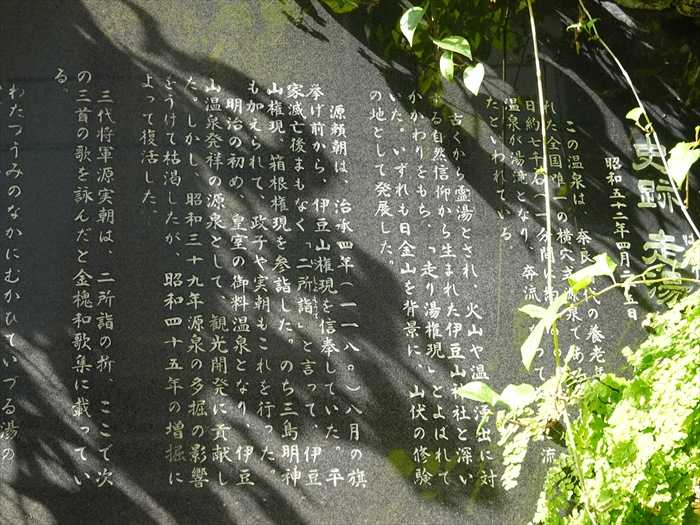 史跡 走湯
昭和五十二年四月二十三日
この温泉は 奈良 代の養老年
れた全国唯一の横穴式源泉であ
日約七千石(一分間に
温泉が湯滝となり、奔流 って 流
たといわれている。
古くから霊湯とされ、火山や温 湧出に対
する自然信仰から生まれた伊豆山神社と深い
かかわりをもち、「走り湯権現」とよばれて
いた。いずれも日金山を背景に、山伏の修験
の地として発展した。
源頼朝は、治承四年(一一八〇)八月の旗
挙げ前から、伊豆山権現を信奉していた。平
家滅亡後まもなく「二所詣」と言って、伊豆
山権現、箱根権現を参詣した。のち三島明神
も加えられて、政子や実朝もこれを行った。
明治の初め、皇室の御料温泉となり、伊豆
山温泉発祥の源泉として、観光開発に貢献し
た。しかし、昭和三十九年源泉の多掘の影響
をうけて枯渇したが、昭和四十五年の増掘に
よって復活した。
三代将軍源実朝は、二所詣の折、ここで次
の三首の歌を詠んだと金槐和歌集に載ってい
る。
わたつうみのなかにむかひていづる湯の